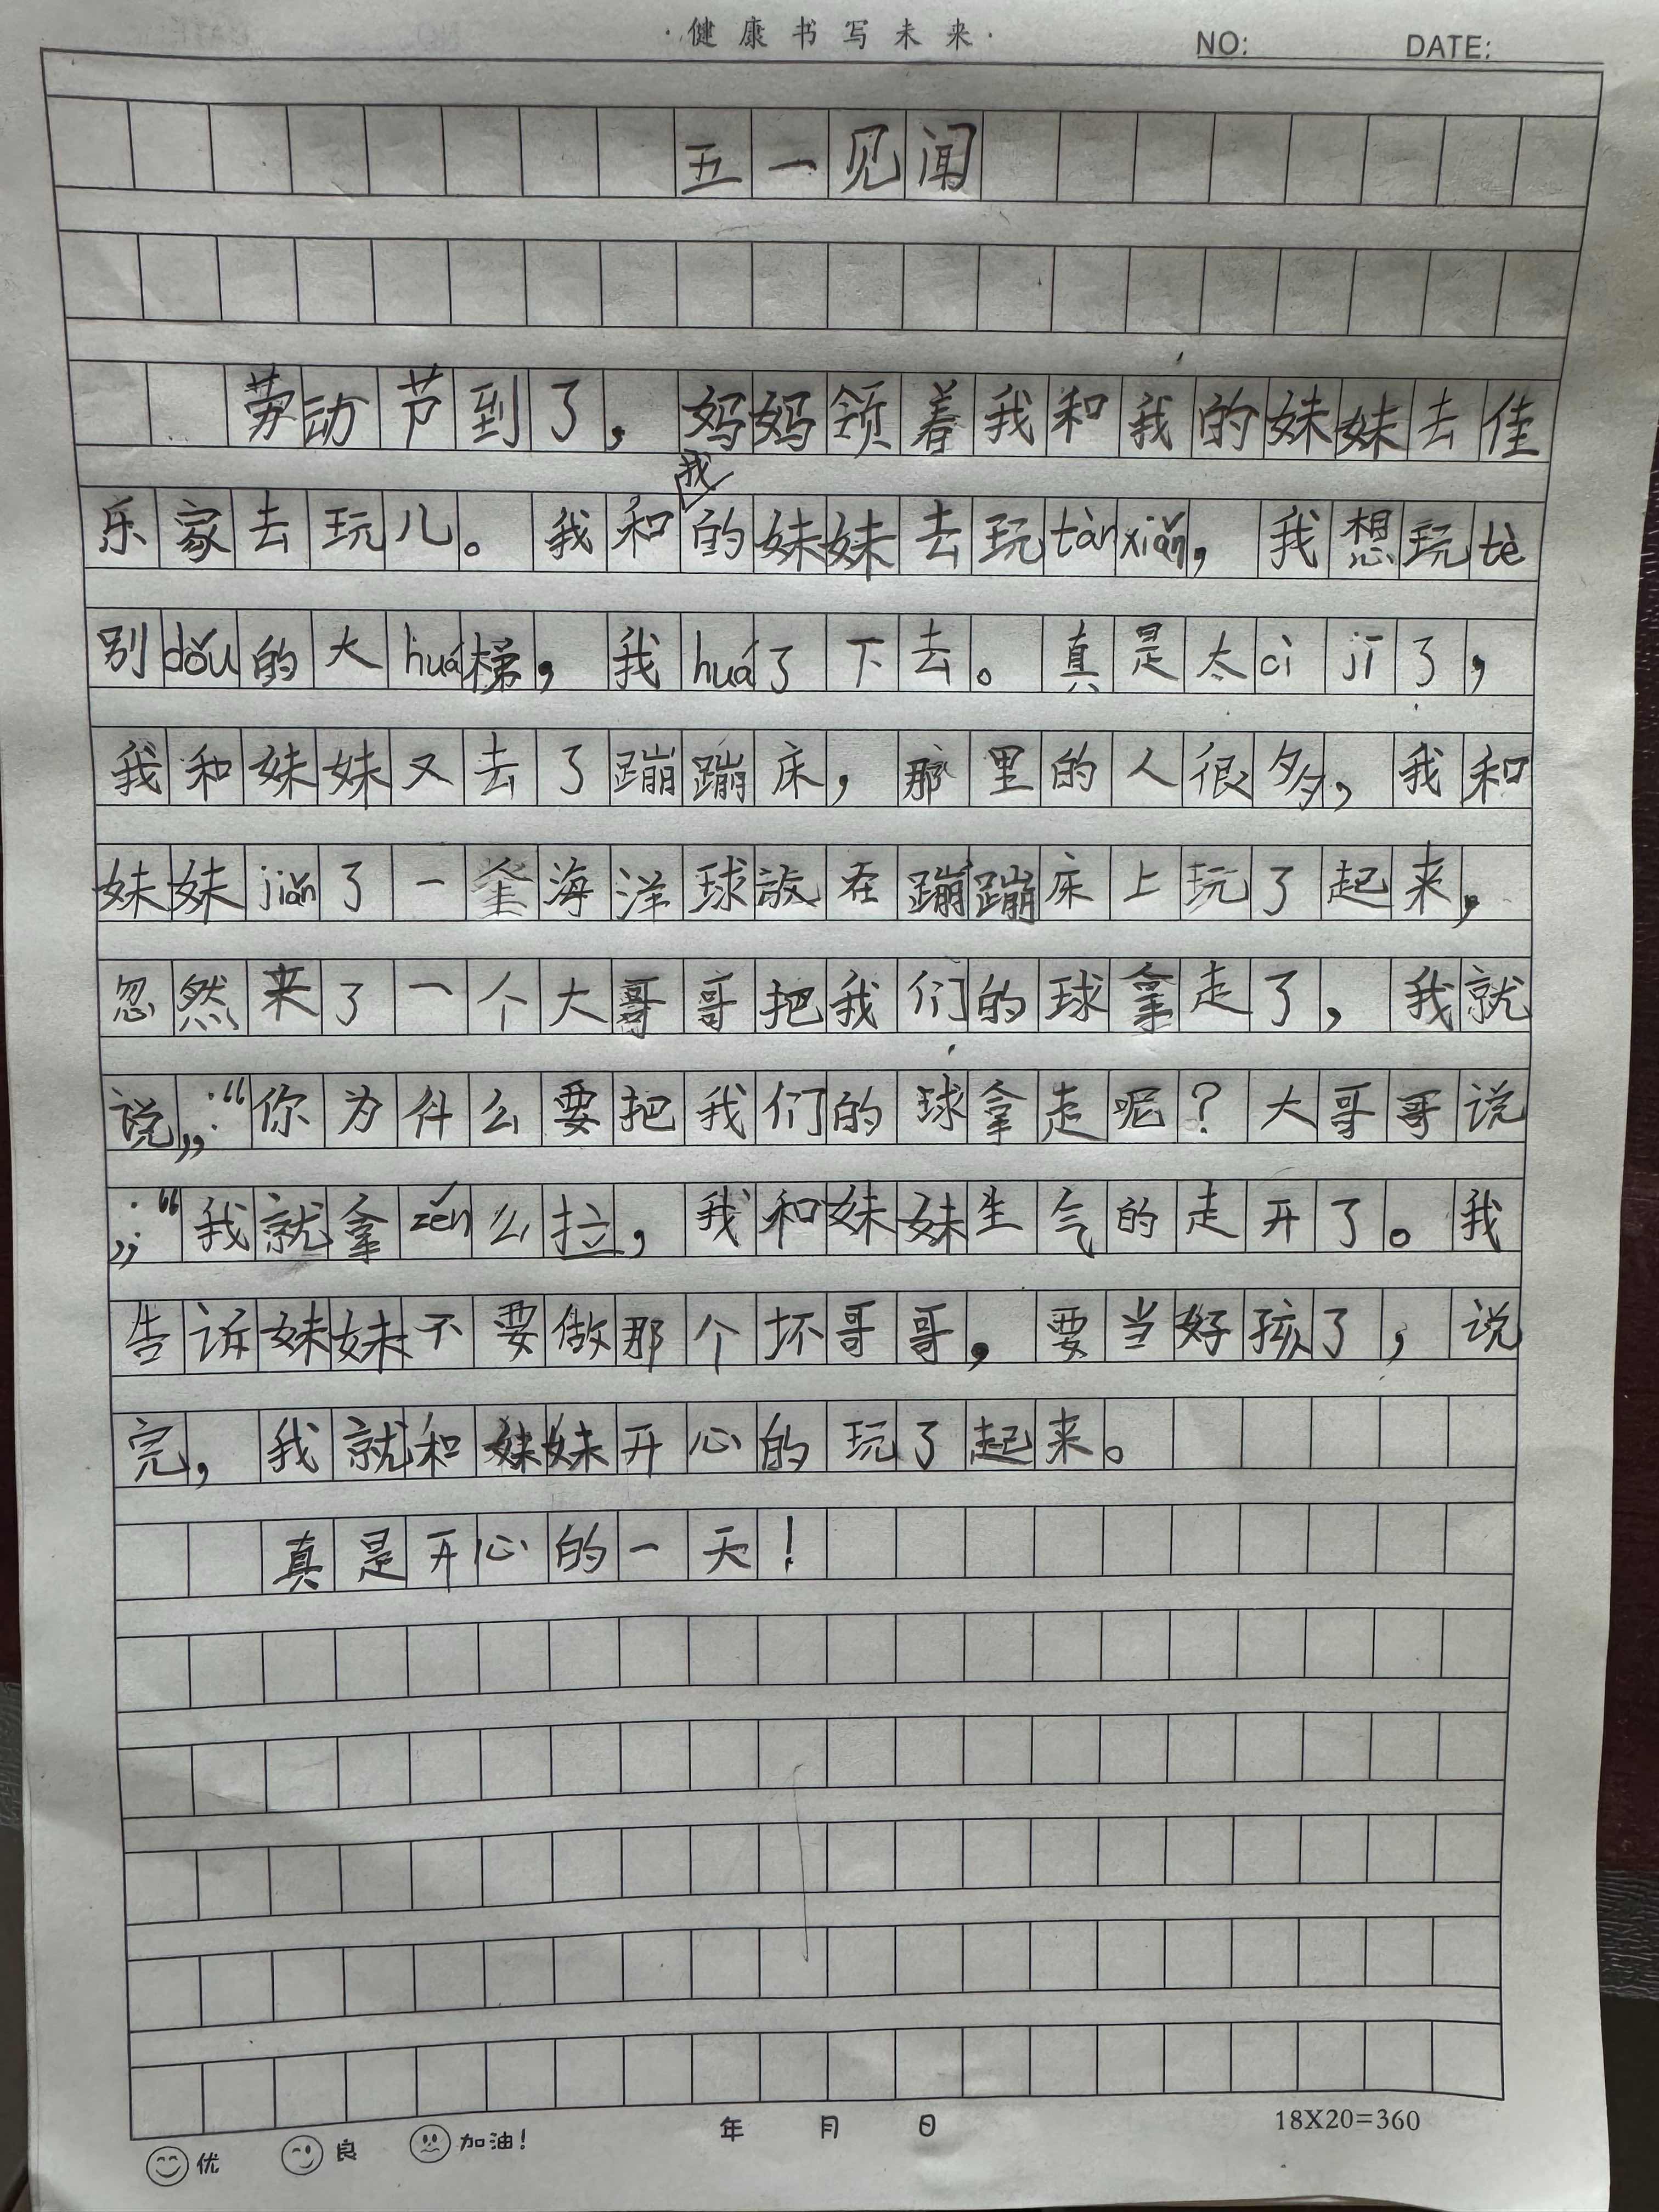 ·健康书写未来·
NO: DATE:
五一见闻
劳动节到了，妈妈领着我和我的妹妹去佳
我
乐家去玩儿。我和的妹妹去玩tàn xiǎn，我想玩tè
别dǒu的大huá梯，我huá了下去。真是太cì jī了，
我和妹妹又去了蹦蹦床，那里的人很多，我和
妹妹jiǎn了一海洋球放在蹦蹦床上玩了起来，
忽然来了一个大哥哥把我们的球拿走了，我就
说，，：“你为什么要把我们的球拿走呢？大哥哥说
，，：“我就拿zěn么拉，我和妹妹生气的走开了。我
告诉妹妹不要做那个坏哥哥，要当好孩了，说
完，我就和妹妹开心的玩了起来。
真是开心的一天！
优 良 加油！ 年 月 日 18X20=360